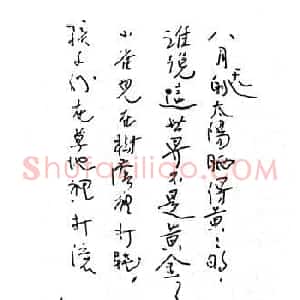 八月天的太陽晒得黃〻的,
誰說這世界不是黃金?
小雀兒在樹蔭裡打盹,
孩子們在草地裡打滾
Shufaziliao.com